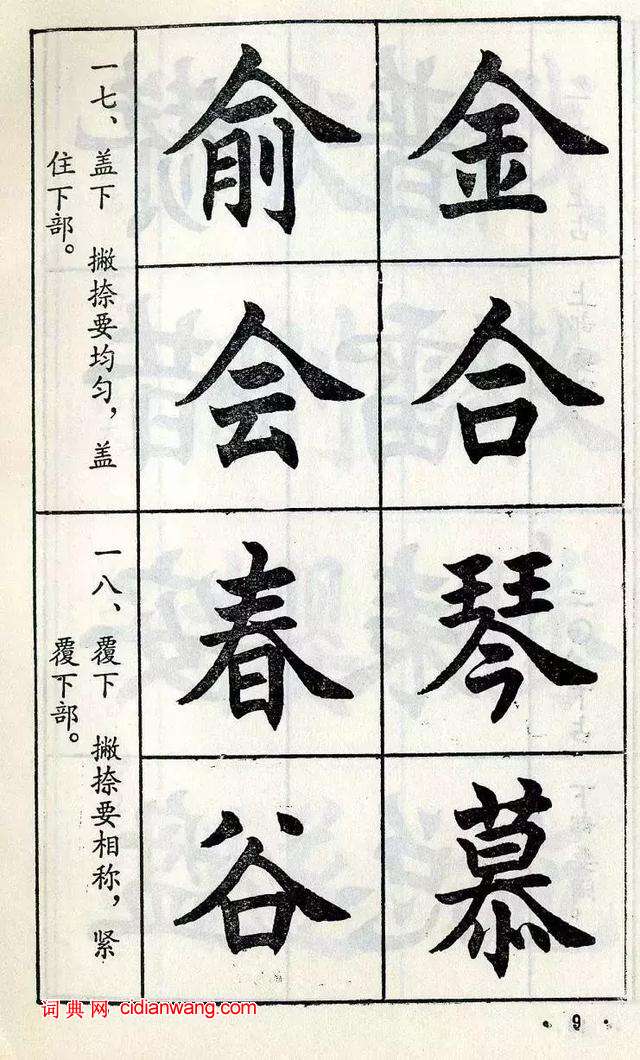 金
合
琴
慕
俞
会
春
谷
一七、盖下 撇捺要均匀，盖
住下部。
一八、覆下 撇捺要相称，紧
覆下部。
词典网 cidianwang.com
·9·